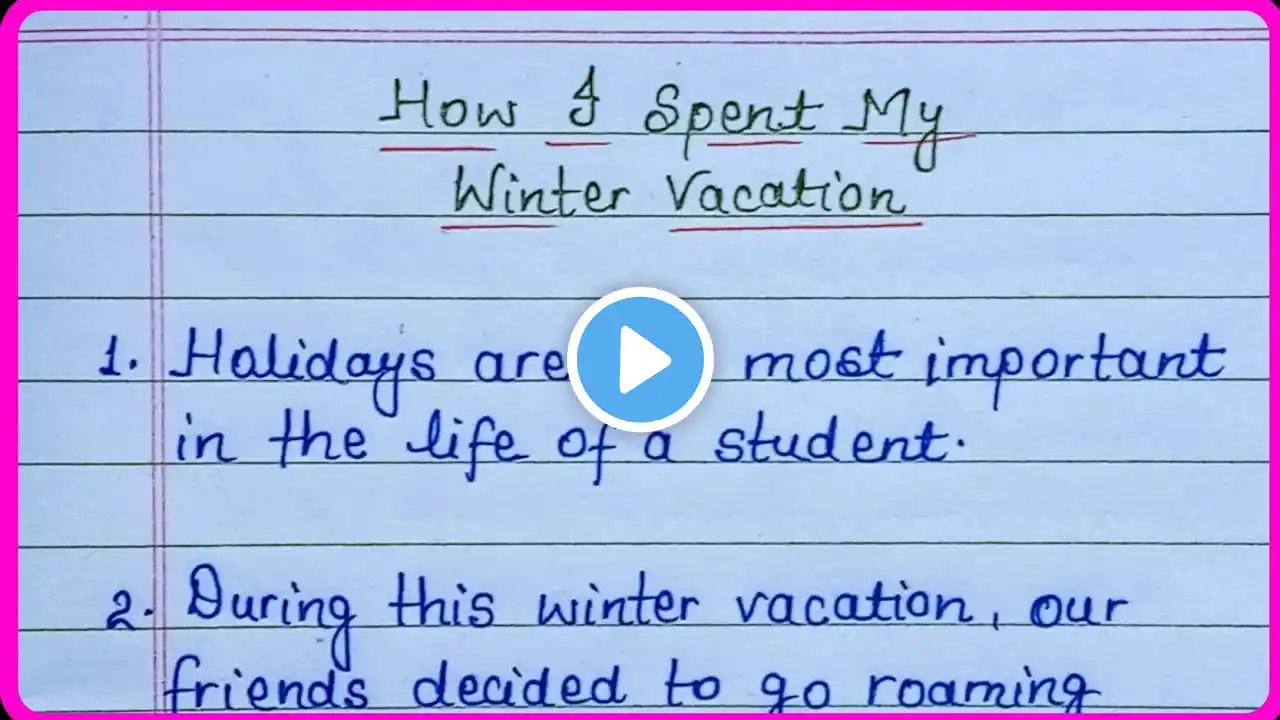 How I Spent My
Winter Vacation
1. Holidays are most important
in the life of a student.
2. During this winter vacation, our
friends decided to go roaming